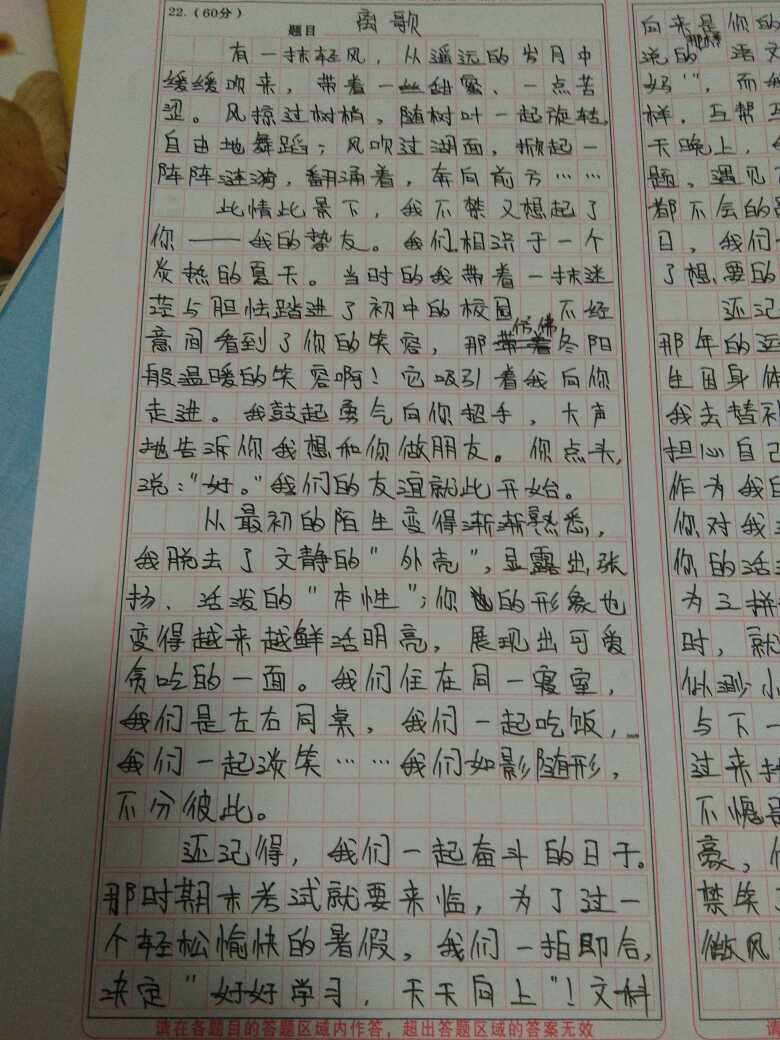 22.（60分）
题目 离歌
有一抹轻风，从遥远的岁月中
缓缓吹来，带着一丝甜蜜、一点苦
涩。风掠过树梢，随树叶一起旋转，
自由地舞蹈；风吹过湖面，掀起一
阵阵涟漪，翻涌着，奔向前方……
此情此景下，我不禁又想起了
你——我的挚友。我们相识于一个
炎热的夏天。当时的我带着一抹迷
茫与胆怯踏进了初中的校园，不经
意间看到了你的笑容，那仿佛冬阳
般温暖的笑容啊！它吸引着我向你
走进。我鼓起勇气向你招手，大声
地告诉你我想和你做朋友。你点头，
说：“好。”我们的友谊就此开始。
从最初的陌生变得渐渐熟悉，
我脱去了文静的“外壳”，显露出张
扬、活泼的“本性”；你的形象也
变得越来越鲜活明亮，展现出可爱
贪吃的一面。我们住在同一寝室，
我们是左右同桌，我们一起吃饭，
我们一起谈笑……我们如影随形，
不分彼此。
还记得，我们一起奋斗的日子。
那时期末考试就要来临，为了过一
个轻松愉快的暑假，我们一拍即合，
决定“好好学习，天天向上”！文科
请在各题目的答题区域内作答，超出答题区域的答案无效
向来是你的
说的 语文
好”，而我
样，互帮互
天晚上，
题，遇见
都不会的
日，我们
了想要的
还记
那年的运
生因身体
我去替补
担心自己
作为我的
你对我
你的活
为三拼
时，就
似渺小
与下一
过来
不愧是
豪，
禁笑
微风
请